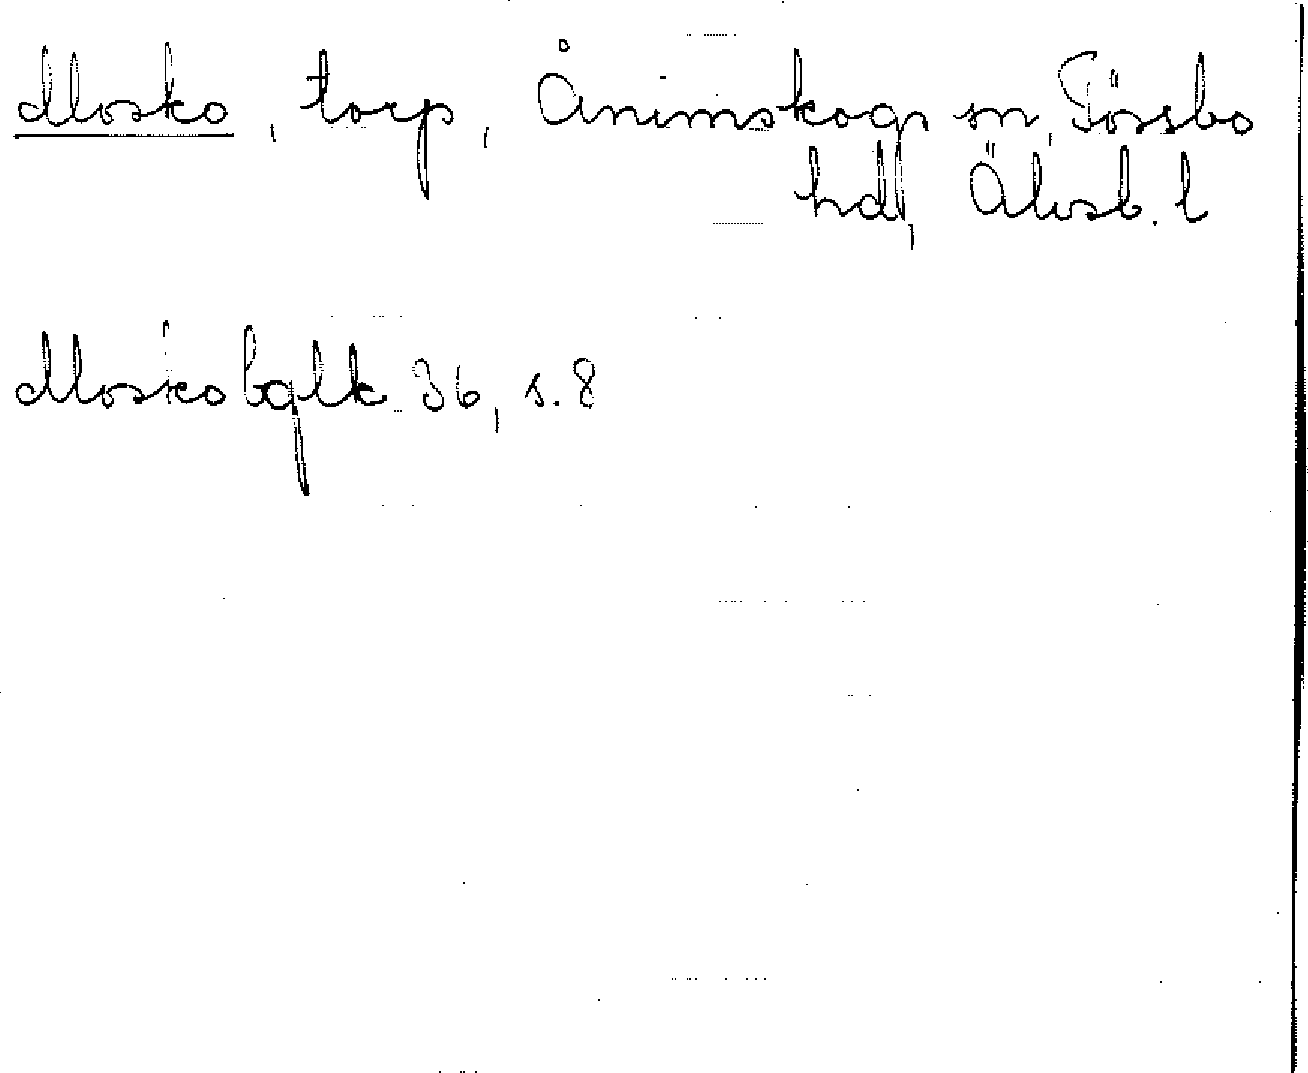 Mosko, torp, Ånimskogs sn, Tössbo
hd, Älvsb. l
Mosko bglk 36, s. 8